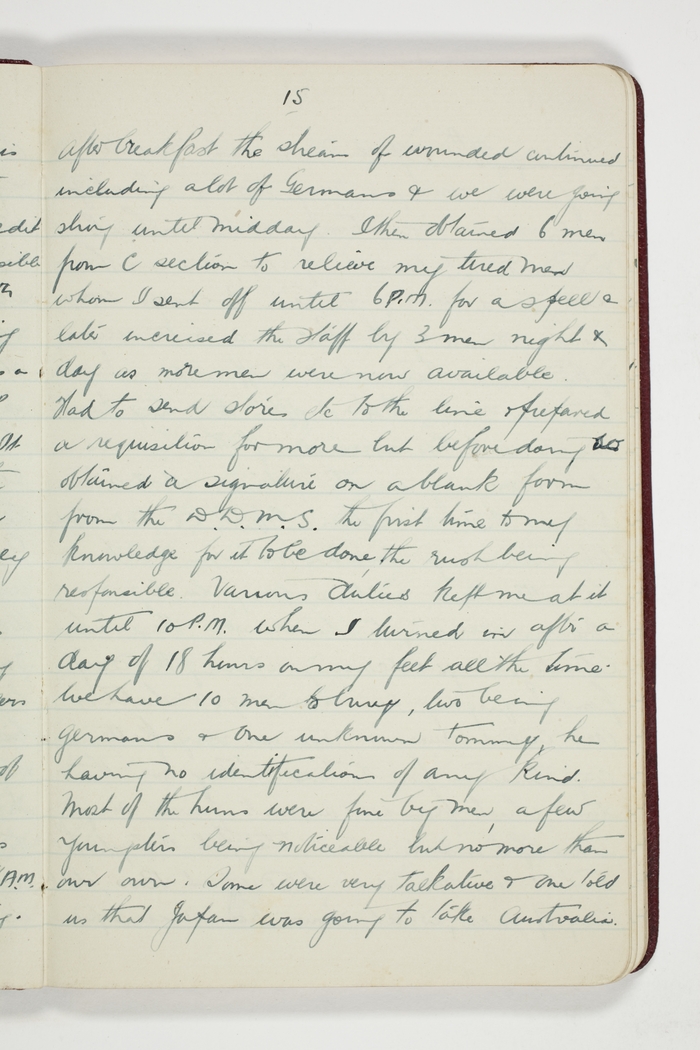 15
after breakfast the stream of wounded continued
including a lot of Germans & we were going
strong until midday. I then obtained 6 men
from C section to relieve my tired men
whom I sent off until 6 P.M. for a spell &
later increased the staff by 3 men night &
day as more men were now available.
Had to send stores &c to the line & prepared
a requisition for more but before doing so
obtained a signature on a blank form
from the D.D.M.S. the first time to my
knowledge for it to be done, the rush being
responsible. Various duties kept me at it
until 10 P.M. when I turned in after a
day of 18 hours on my feet all the time.
We have 10 men to bury, two being
Germans & one unknown Tommy, he
having no identifications of any kind.
Most of the huns were fine big men, a few
youngsters being noticeable but no more than
our own. Some were very talkative & one told
us that Japan was going to take Australia.
is
edit
sible
ers
A.M.